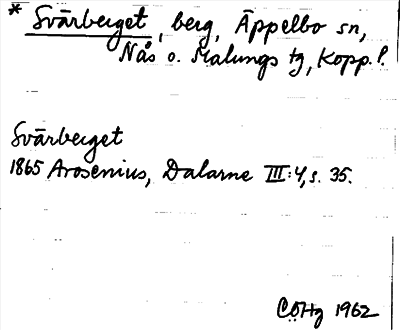 * Svärberget, berg, Äppelbo sn,
Nås o. Malungs tg, Kopp. l.
Svärberget
1865 Arosenius, Dalarne III:4, s. 35.
CÖHg 1962